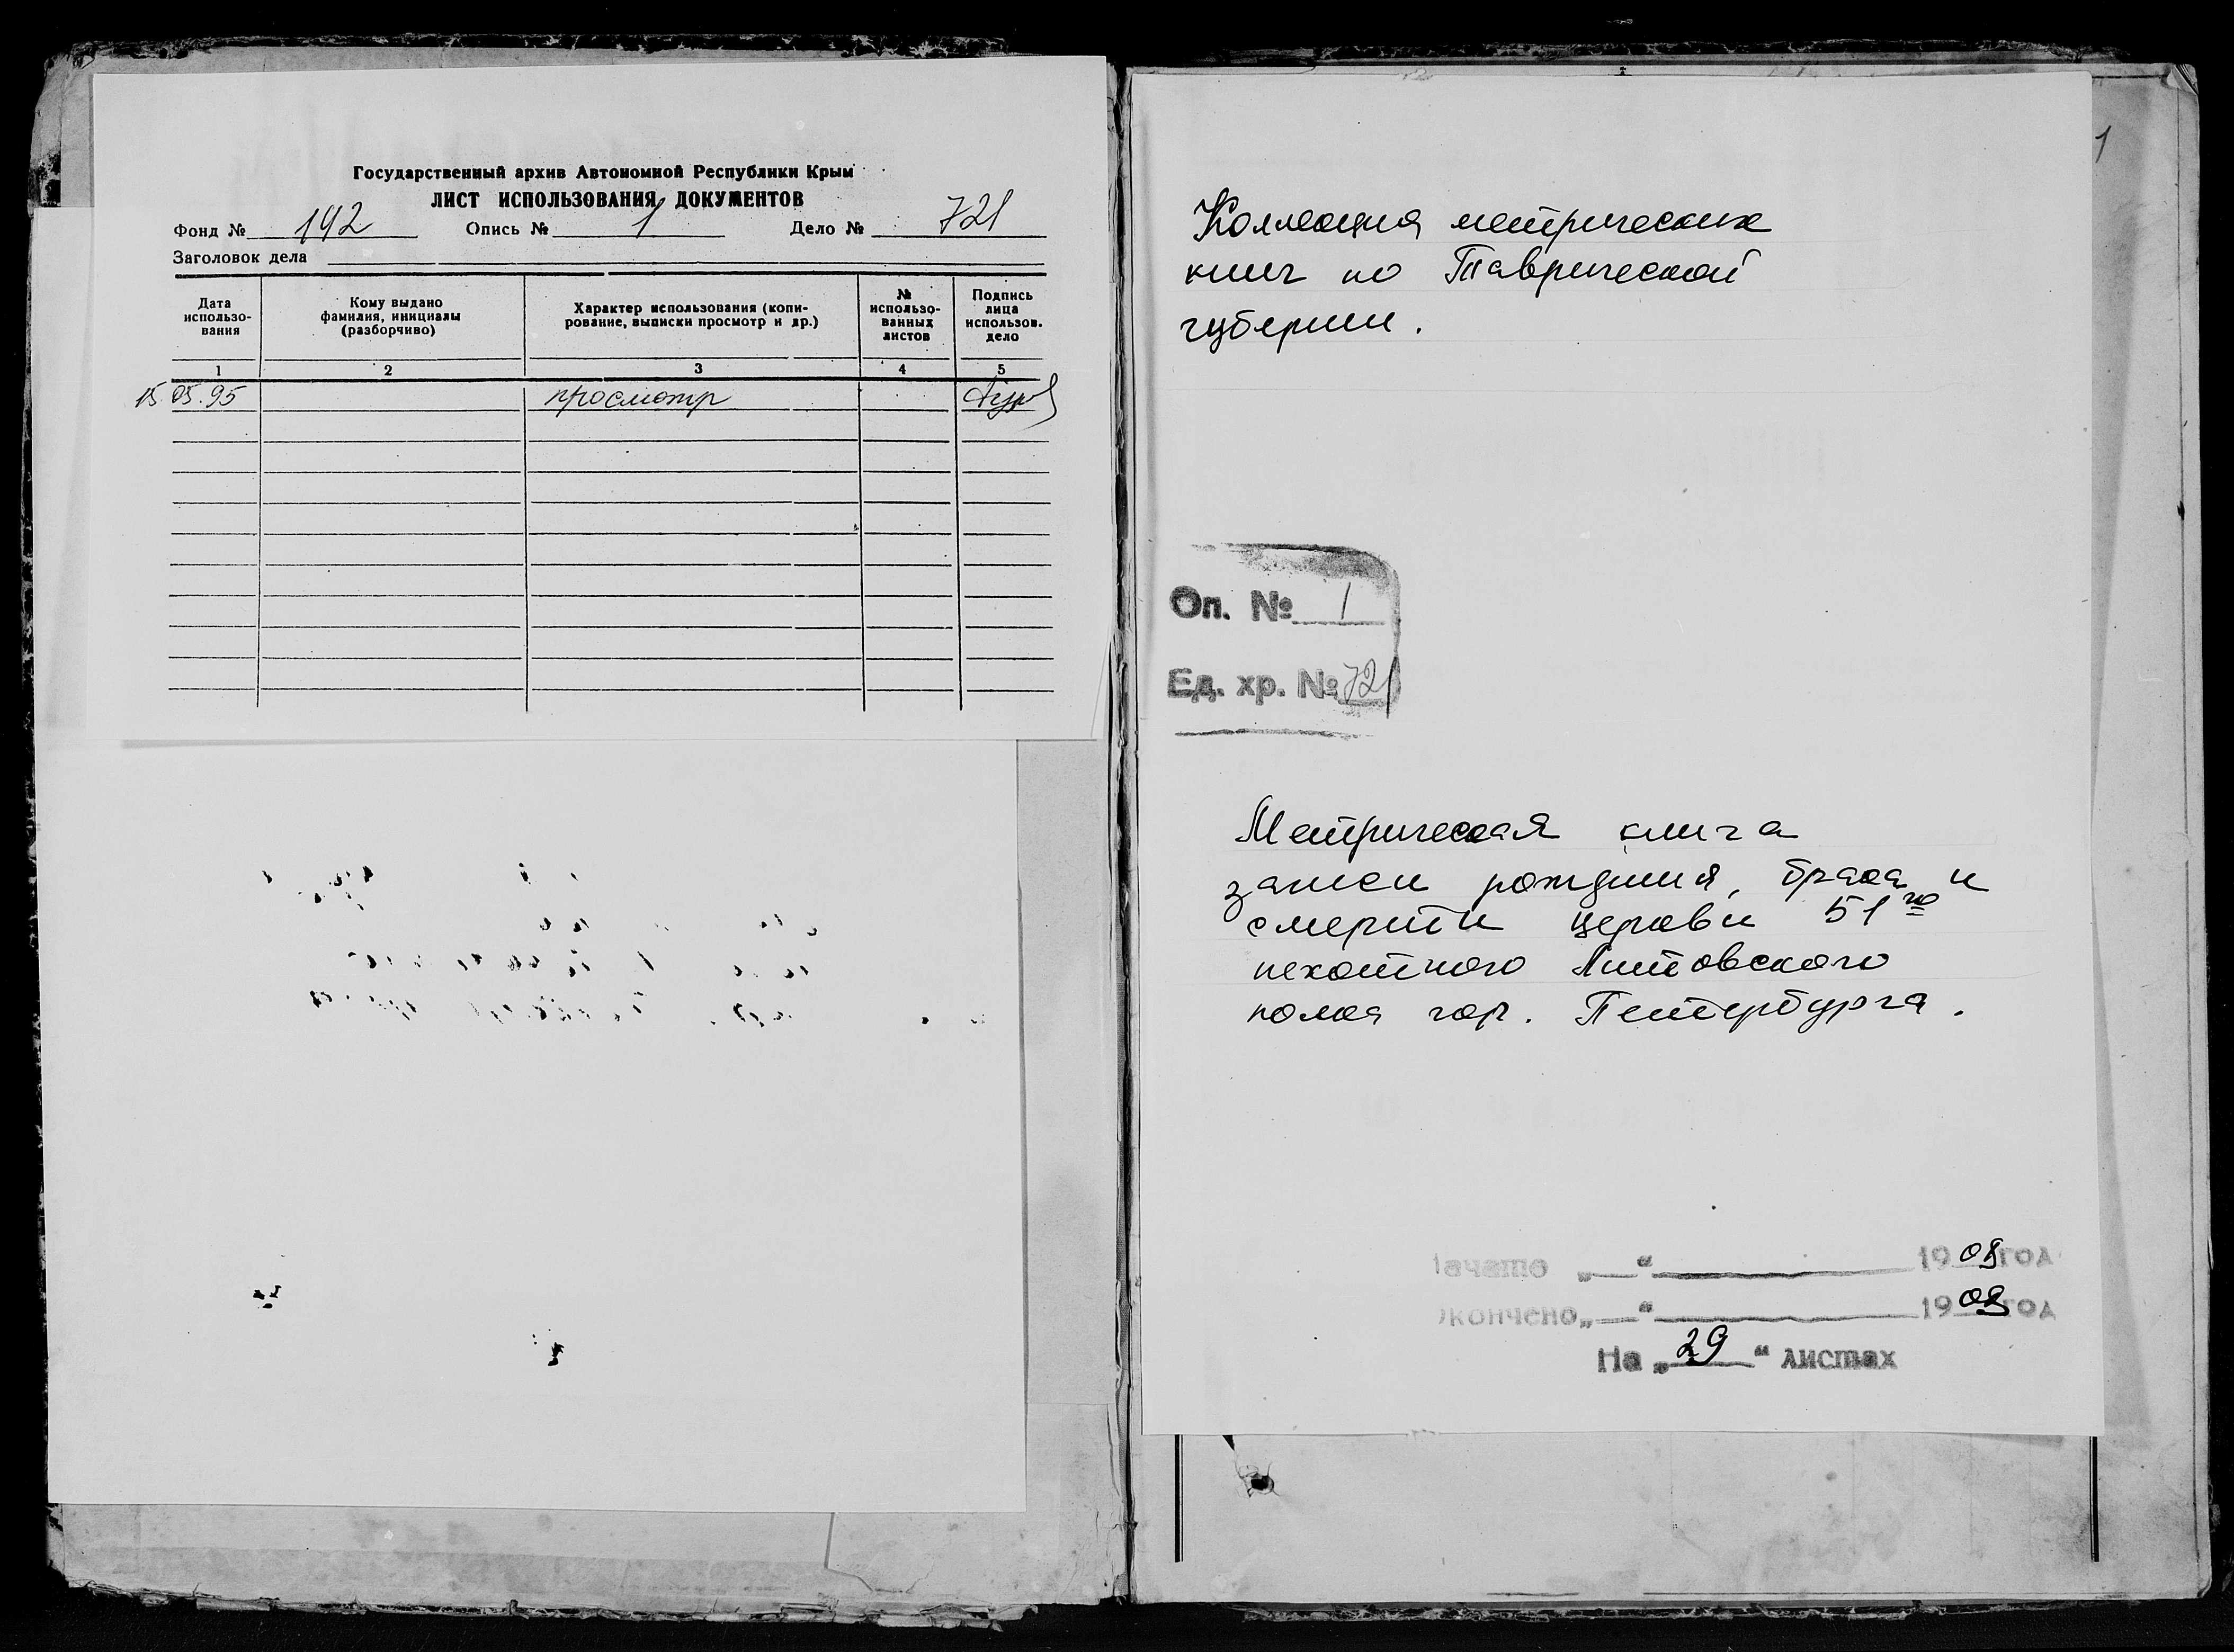 Государственный архив Автономной Республики Крым
ЛИСТ ИСПОЛЬЗОВАНИЯ ДОКУМЕНТОВ
Фонд № 142 Опись № 1 Дело № 721
Заголовок дела
Дата использо-вания
Кому выдано фамилия, инициалы (разборчиво)
Характер использования (копи-рование, выписки просмотр и др.)
№ использо-ванных листов
Подпись лица использов. дело
1 2 3 4 5
15.05.95 просмотр
1
Коллекция метрических
книг по Таврической
губернии.
Оп. № 1
Ед. хр. № 721
Метрическая книга
записи рождения, брака и
смерти церкви 51го
пехотного Литовского
полка гор. Петербурга.
Начато „ “ 1908 год
Окончено „ “ 1908 год
На „29“ листах